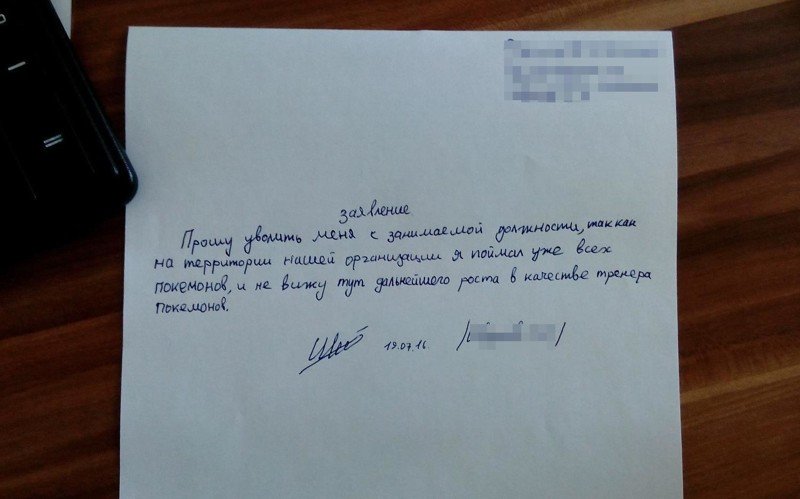 заявление
Прошу уволить меня с занимаемой должности, так как
на территории нашей организации я поймал уже всех
покемонов, и не вижу тут дальнейшего роста в качестве тренера
покемонов.
19.07.16.